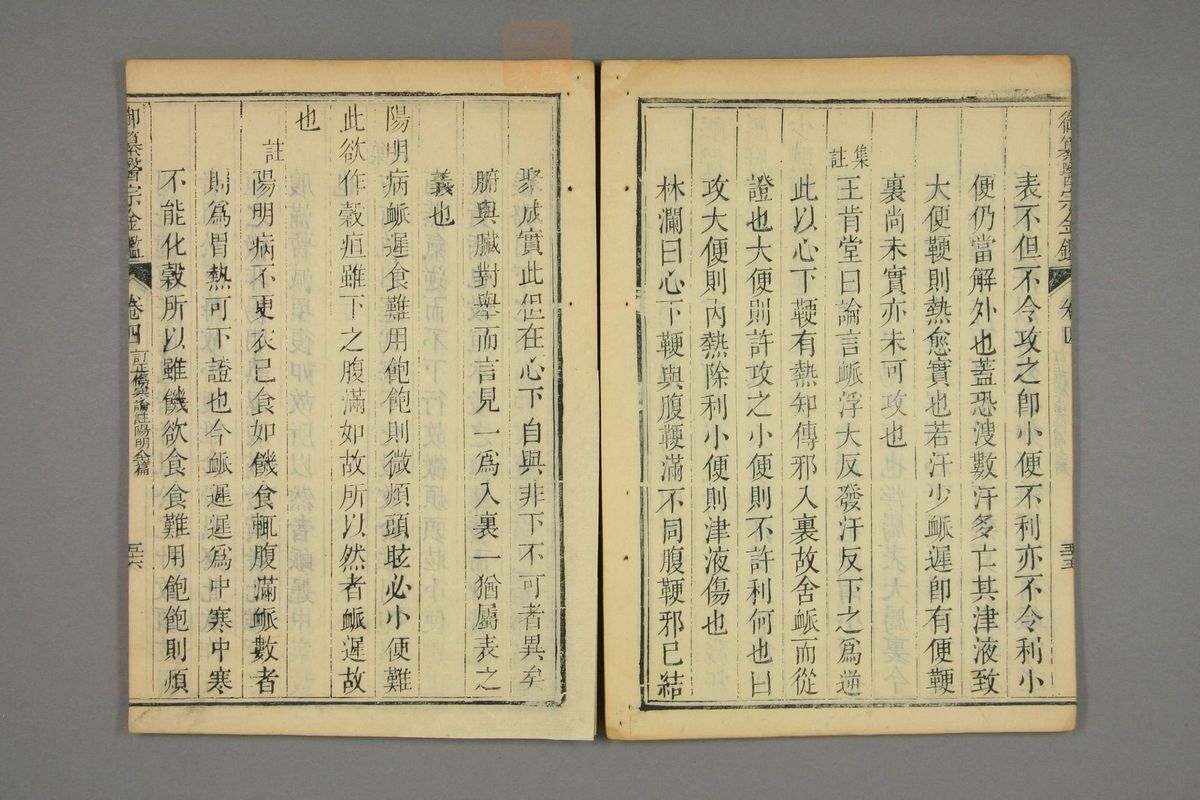 御纂醫宗金鑑 卷四
表不但不令攻之卽小便不利亦不令利小
便仍當解外也蓋恐溲數汗多亡其津液致
大便鞕則熱愈實也若汗少衇遲卽有便鞕
裏尚未實亦未可攻也
集註王肯堂曰論言衇浮大反發汗反下之爲逆
此以心下鞕有熱知傳邪入裏故舍衇而從
證也大便則許攻之小便則不許利何也曰
攻大便則內熱除利小便則津液傷也
林瀾曰心下鞕與腹鞕滿不同腹鞕邪已結
聚成實此但在心下自與非下不可者異矣
腑與臟對舉而言見一爲入裏一猶屬表之
義也
陽明病衇遲食難用飽飽則微煩頭眩必小便難
此欲作穀疸雖下之腹滿如故所以然者衇遲故
也
註陽明病不更衣已食如饑食輒腹滿衇數者
則爲胃熱可下證也今衇遲遲爲中寒中寒
不能化穀所以雖饑欲食食難用飽飽則煩
御纂醫宗金鑑 卷四 訂正傷寒論註陽明全篇